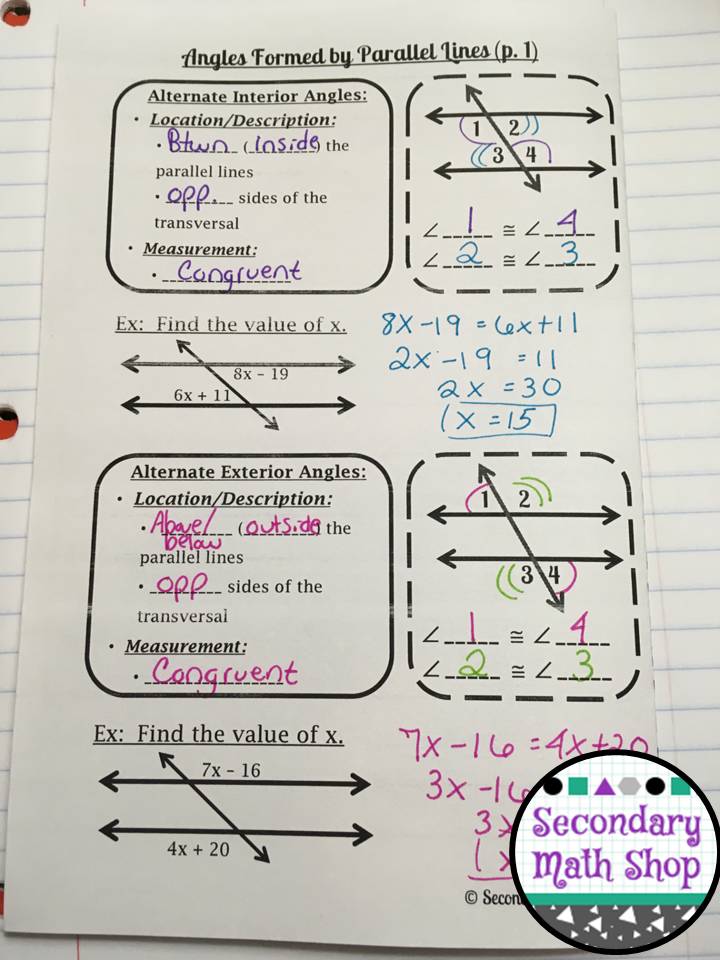 Angles Formed by Parallel Lines (p. 1)
Alternate Interior Angles:
• Location/Description:
• Btwn (inside) the
parallel lines
• opp. sides of the
transversal
• Measurement:
• Congruent
1 2
3 4
∠ 1 ≅ ∠ 4
∠ 2 ≅ ∠ 3
Ex: Find the value of x.
8x - 19
6x + 11
8x - 19 = 6x + 11
2x - 19 = 11
2x = 30
x = 15
Alternate Exterior Angles:
• Location/Description:
• Above/
below (outside the
parallel lines
• opp sides of the
transversal
• Measurement:
• Congruent
1 2
3 4
∠ 1 ≅ ∠ 4
∠ 2 ≅ ∠ 3
Ex: Find the value of x.
7x - 16
4x + 20
7x - 16 = 4x + 20
3x - 16
3x
x
© Secon
Secondary
Math Shop